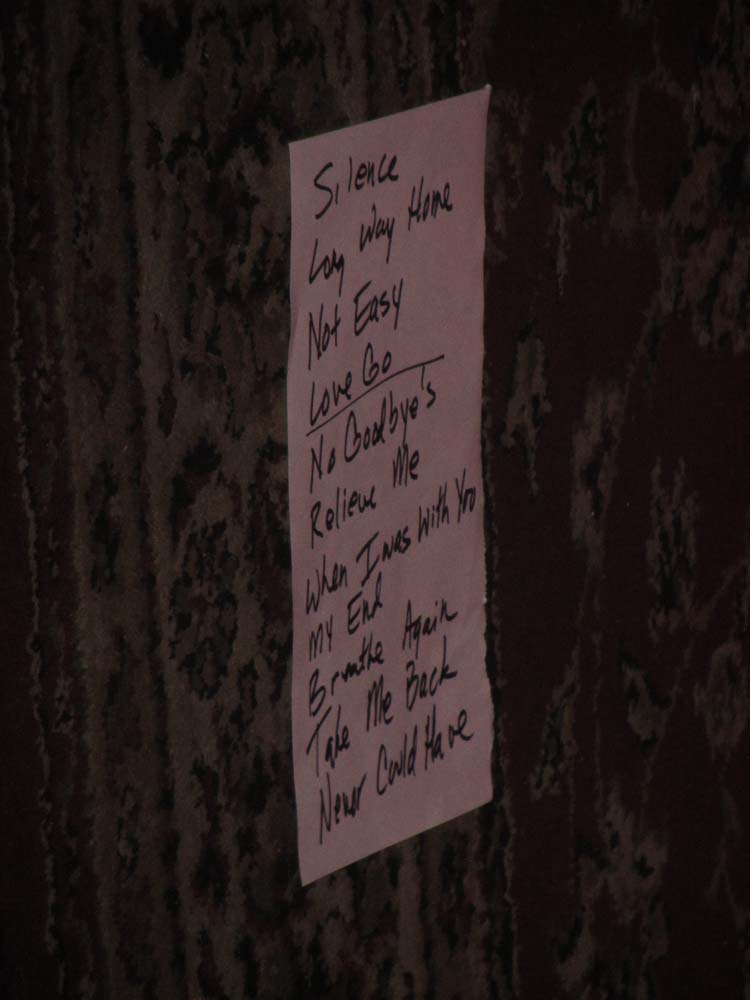 Silence
Long Way Home
Not Easy
Love Go
No Goodbye's
Relieve Me
When I was With You
My End
Breathe Again
Take Me Back
Never Could Have